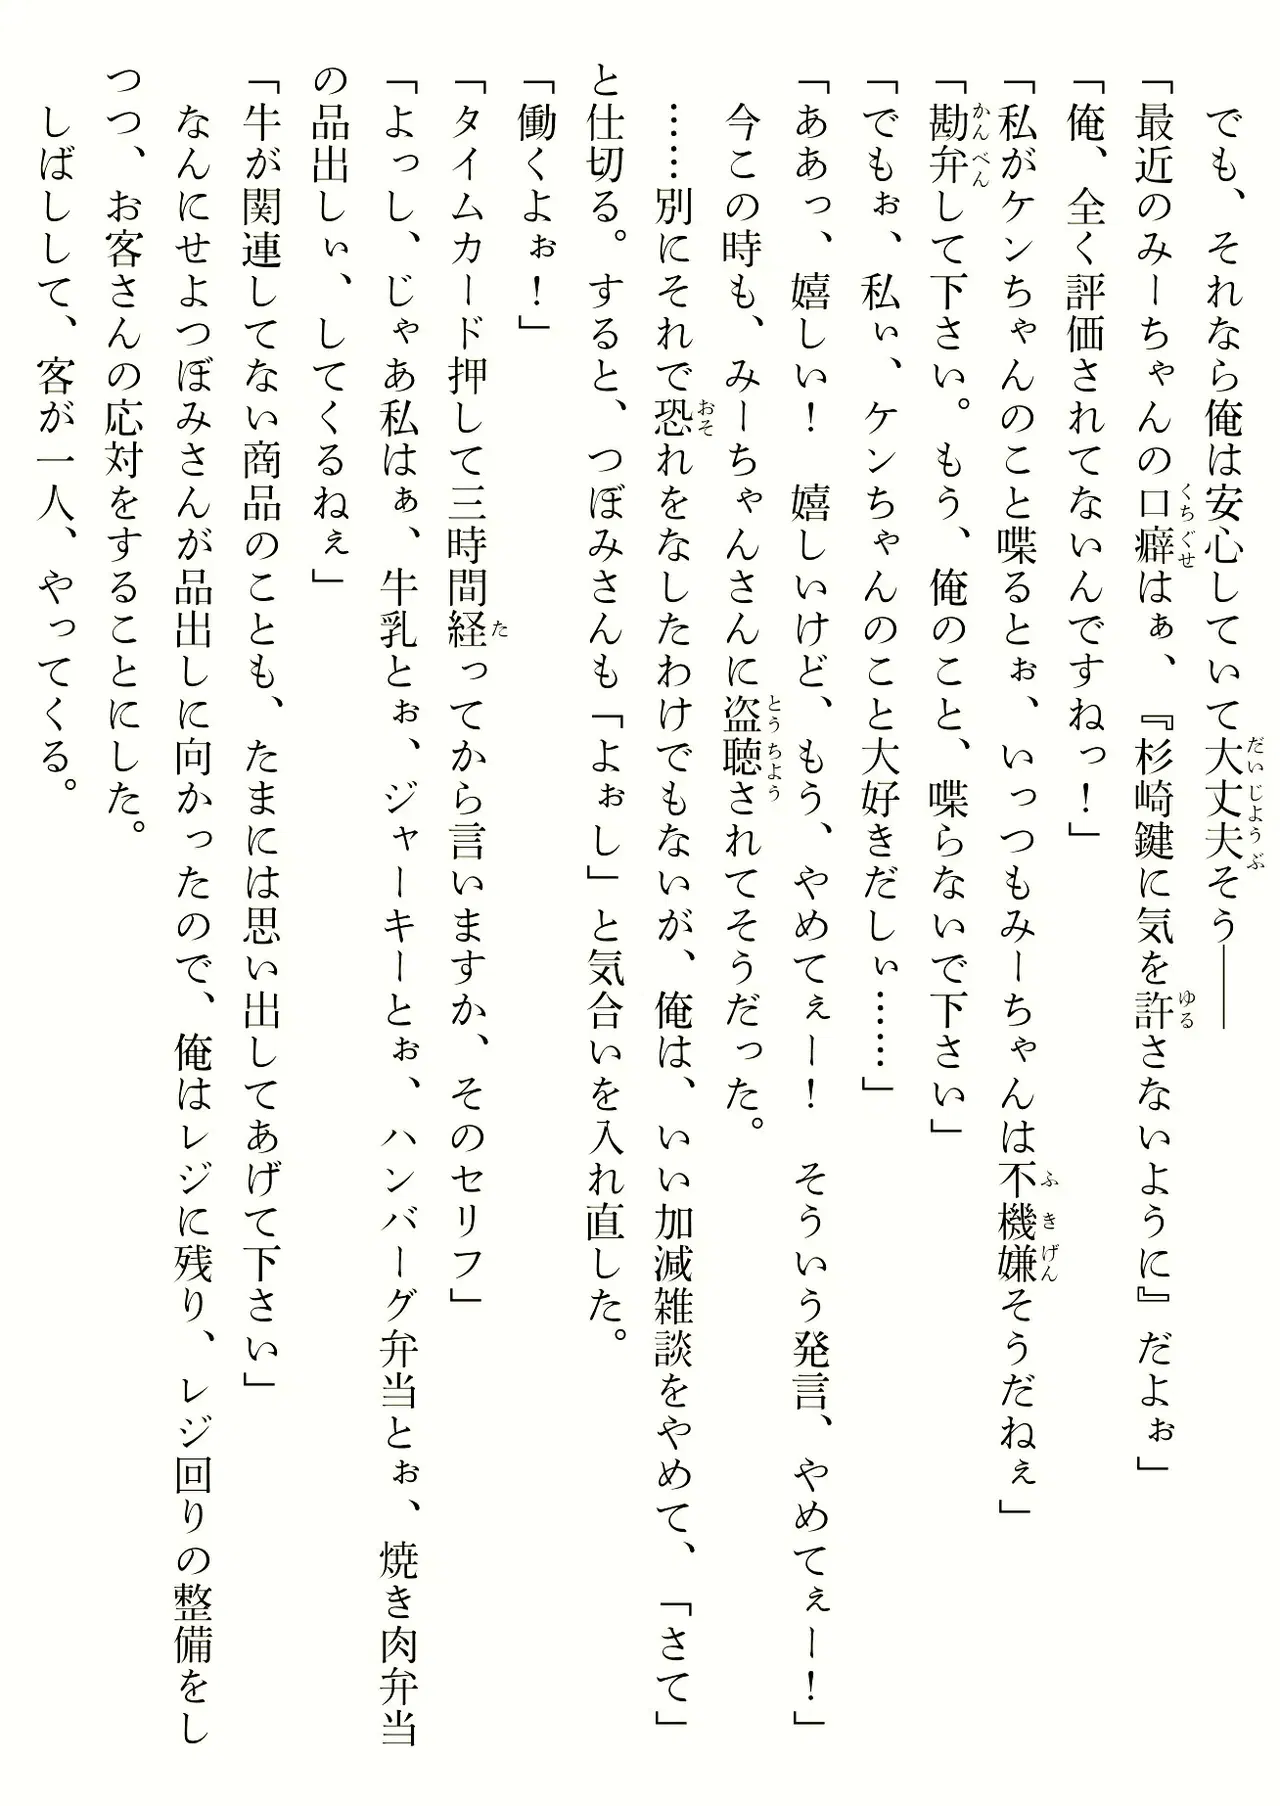 でも、それなら俺は安心していて大丈夫そう――
「最近のみーちゃんの口癖はぁ、『杉崎鍵に気を許さないように』だよぉ」
「俺、全く評価されてないんですねっ！」
「私がケンちゃんのこと喋るとぉ、いっつもみーちゃんは不機嫌そうだねぇ」
「勘弁して下さい。もう、俺のこと、喋らないで下さい」
「でもぉ、私ぃ、ケンちゃんのこと大好きだしぃ……」
「ああっ、嬉しい！　嬉しいけど、もう、やめてぇー！　そういう発言、やめてぇー！」
今この時も、みーちゃんさんに盗聴されてそうだった。
……別にそれで恐れをなしたわけでもないが、俺は、いい加減雑談をやめて、「さて」
と仕切る。すると、つぼみさんも「よぉし」と気合いを入れ直した。
「働くよぉ！」
「タイムカード押して三時間経ってから言いますか、そのセリフ」
「よっし、じゃあ私はぁ、牛乳とぉ、ジャーキーとぉ、ハンバーグ弁当とぉ、焼き肉弁当
の品出しぃ、してくるねぇ」
「牛が関連してない商品のことも、たまには思い出してあげて下さい」
なんにせよつぼみさんが品出しに向かったので、俺はレジに残り、レジ回りの整備をし
つつ、お客さんの応対をすることにした。
しばしして、客が一人、やってくる。